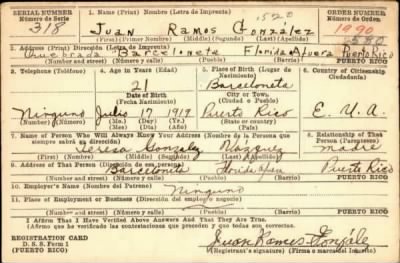 SERIAL NUMBER 1. Name (Print) Nombre (Letra de Imprenta) ORDER NUMBER
Número de Serie 1520 Número de Orden
318 Juan Ramos González 1990
(First) (Primer Nombre) (Middle) (Segundo) (Last) (Apellido)
2. Address (Print) Dirección (Letra de Imprenta)
Quebrada Barceloneta Florida Afuera Puerto Rico
PUERTO RICO
3. Telephone (Teléfono) 4. Age in Years (Edad) 5. Place of Birth (Lugar de Nacimiento) 6. Country of Citizenship (Ciudadanía)
21 Barceloneta
Date of Birth City or Town
(Fecha Nacimiento) (Ciudad o Pueblo)
Ninguno Julio 17 1919 Puerto Rico E. U. A.
(Number) (Número) (Mo.) (Day) (Yr.) (State or country)
7. Name of Person Who Will Always Know Your Address (Nombre de la Persona que siempre sabrá su dirección) 8. Relationship of That Person (Parentesco)
Teresa Gonzalez Vázquez madre
(First) (Primer Nombre) (Middle) (Segundo) (Last) (Apellido)
9. Address of That Person (Dirección de esa persona)
Barceloneta Florida Afuera Puerto Rico
PUERTO RICO
10. Employer's Name (Nombre del Patrono)
Ninguno
11. Place of Employment or Business (Dirección del empleo o negocio)
(Number and Street) PUERTO RICO
I Affirm That I Have Verified Above Answers And That They Are True.
(Afirmo que he verificado las contestaciones que preceden y que todas son ciertas).
REGISTRATION CARD
D. S. S. Form 1
(PUERTO RICO)
Juan Ramos González
(Registrant's signature) (Firma o marca del Inscrito)